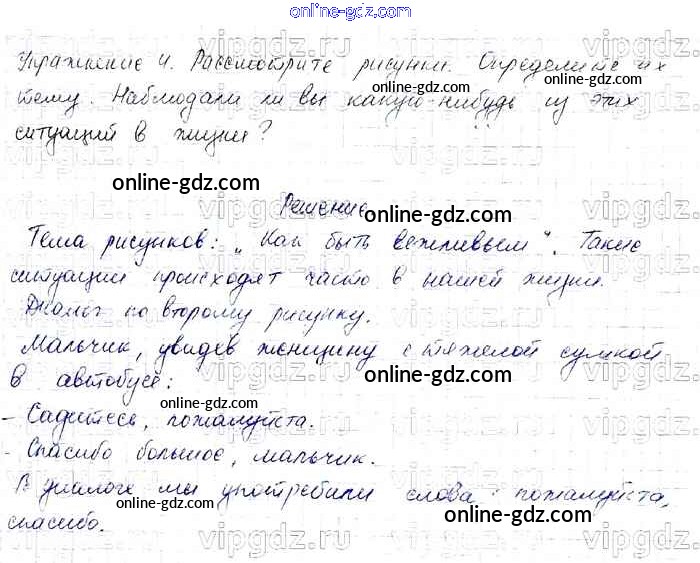 online-gdz.com
Упражнение 4. Рассмотрите рисунки. Определите их
тему. Наблюдали ли вы какую-нибудь из этих
ситуаций в жизни?
online-gdz.com
Решение
online-gdz.com
Тема рисунков: „Как быть вежливым“. Такие
ситуации происходят часто в нашей жизни.
online-gdz.com
Диалог по второму рисунку.
Мальчик, увидев женщину с тяжелой сумкой
в автобусе:
online-gdz.com
online-gdz.com
- Садитесь, пожалуйста.
- Спасибо большое, мальчик.
online-gdz.com
В диалоге мы употребили слова: пожалуйста,
online-gdz.com
спасибо.
vipgdz.com
vipgdz.com
vipgdz.com